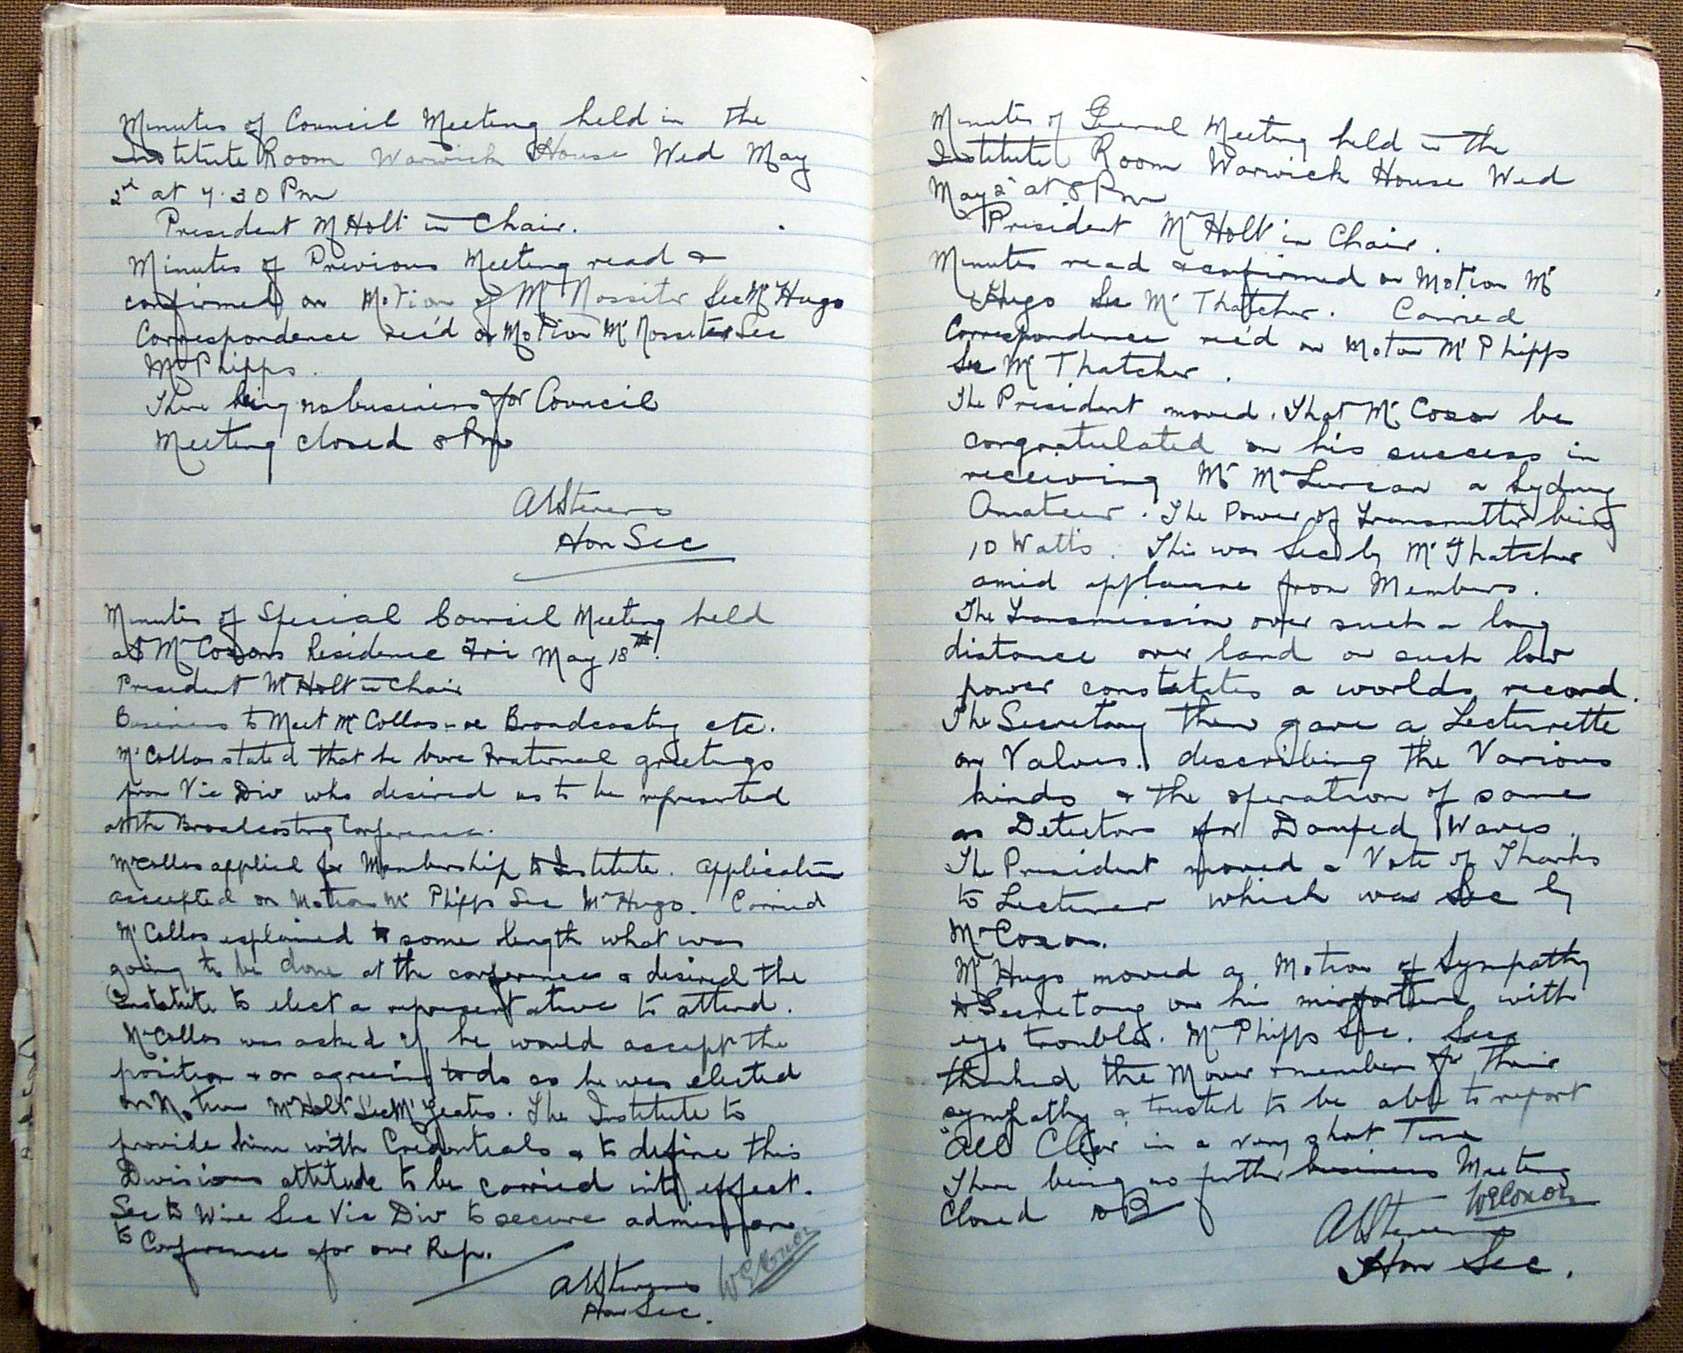 Minutes of Council Meeting held in the
Institute Room Warwick House Wed May
2nd at 7.30 Pm
President Mr Holt in Chair.
Minutes of Previous Meeting read &
confirmed on Motion of Mr Nossiter Sec Mr Hugo
Correspondence rec'd on Motion Mr Nossiter Sec
Mr Phipps.
There being no business for Council
Meeting closed 8 Pm
Hon Sec
Minutes of Special Council Meeting held
at Mr Coxons Residence Fri May 18th.
President Mr Holt in Chair
Business to Meet Mr Collas re Broadcasting etc.
Mr Collas stated that he bore Fraternal greetings
from Vic Div who desired us to be represented
at the Broadcasting Conference.
Mr Collas applied for Membership to Institute. Application
accepted on Motion Mr Phipps Sec Mr Hugo. Carried
Mr Collas explained at some length what was
going to be done at the conference & desired the
Institute to elect a representative to attend.
Mr Collas was asked if he would accept the
position & on agreeing to do so he was elected
on Motion Mr Holt Sec Mr Yeates. The Institute to
provide him with Credentials & to define this
Divisions attitude to be carried into effect.
Sec to Wire Sec Vic Div to secure admission
to Conference for our Rep.
AE Stevens
Hon Sec.
W E Coxon
Minutes of General Meeting held in the
Institute Room Warwick House Wed
May 2nd at 8 Pm
President Mr Holt in Chair.
Minutes read & confirmed on Motion Mr
Hugo Sec Mr Thatcher. Carried
Correspondence rec'd on Motion Mr Phipps
Sec Mr Thatcher.
The President moved. That Mr Coxon be
congratulated on his success in
receiving Mr McLurcan a Sydney
Amateur. The Power of Transmitter being
10 Watts. This was Sec by Mr Thatcher
amid applause from Members.
The Transmission over such a long
distance over land on such low
power constitutes a worlds record.
The Secretary then gave a Lecturette
on Valves. describing the Various
kinds & the operation of same
as Detectors for Damped Waves.
The President moved a Vote of Thanks
to Lecturer which was Sec by
Mr Coxon.
Mr Hugo moved a Motion of Sympathy
to Secretary on his misfortune with
eye trouble. Mr Phipps Sec. Sec
thanked the Mover & members for their
sympathy & trusted to be able to report
"All Clear" in a very short Time
There being no further business Meeting
Closed
W E Coxon
AE Stevens
Hon Sec.